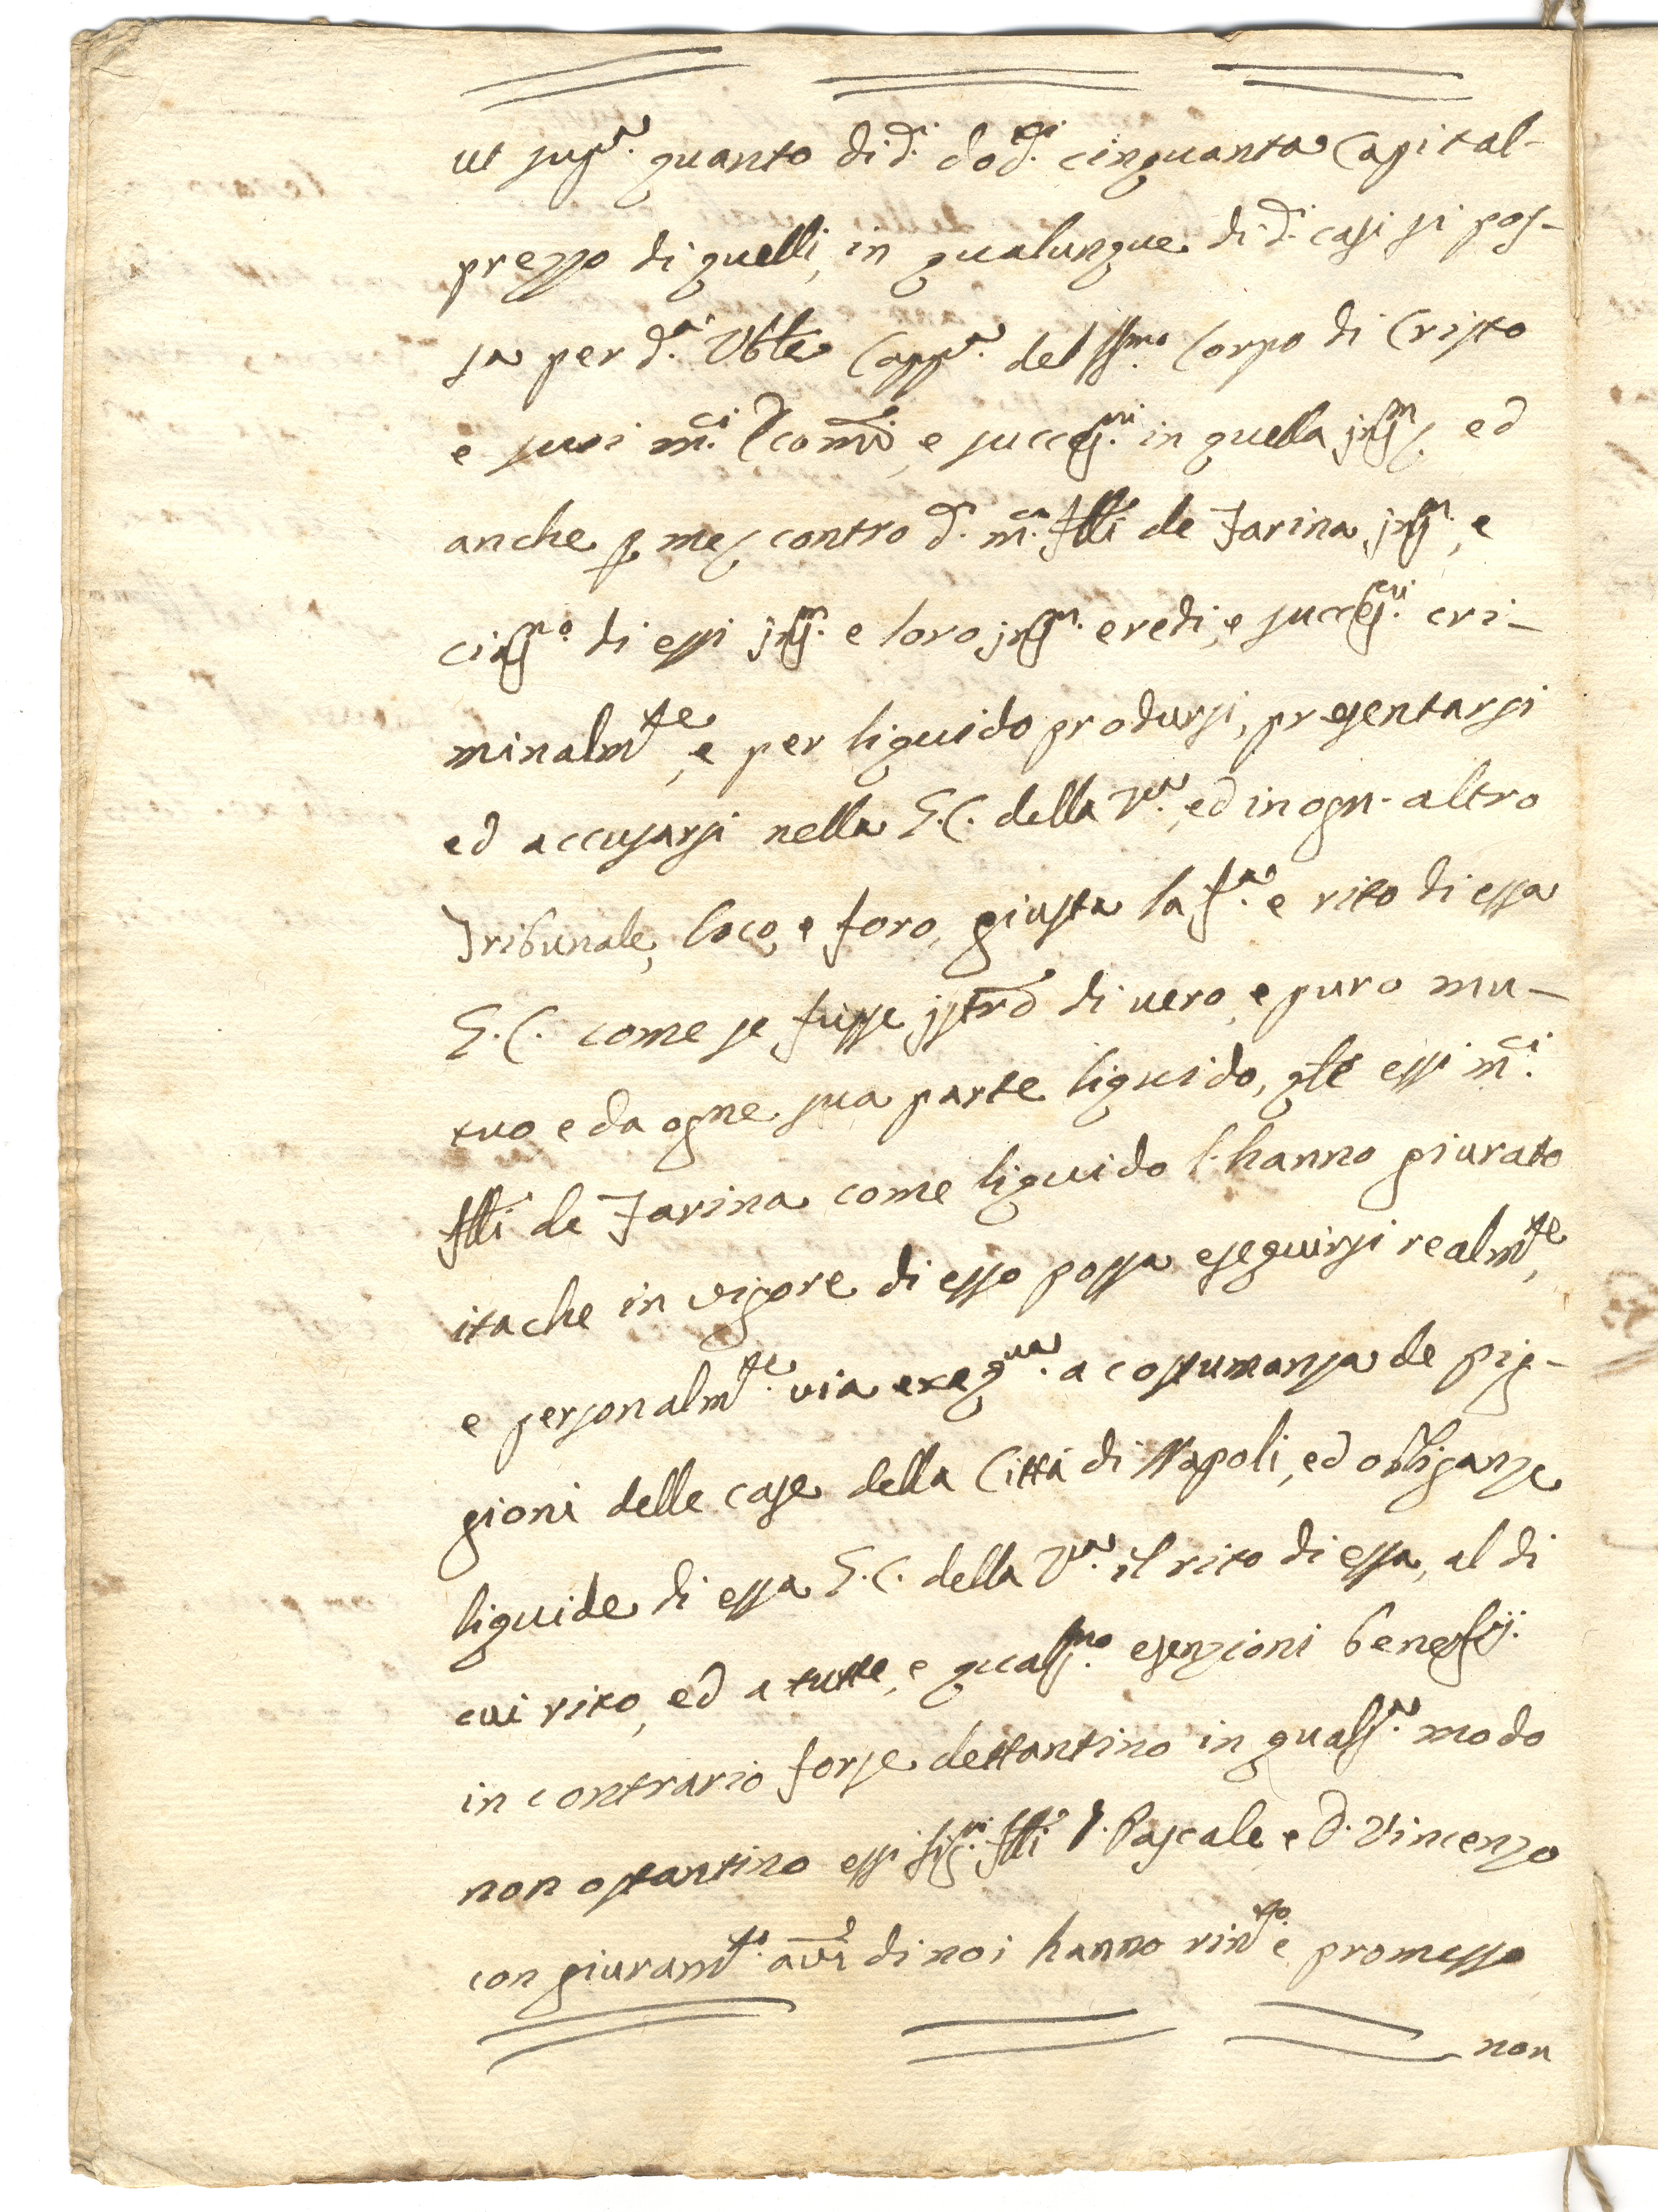 ut sup.ª quanto di d.i d.ti cinquanta Capital-
prezzo di quelli, in qualunque di d.i casi si pos-
sa per d.ª Vble Capp.ª del SSmo Corpo di Cristo
e suoi m.ci Economi, e succes.ri in quella insm, ed
anche p me, contro d.i m.ci flli de Farina insm, e
ciasc.no di essi insm. e loro insm. eredi, e success.ri cri-
minalm.te, e per liquido prodursi, presentarsi
ed accusarsi nella G.C. della V.ª, ed in ogn-altro
Tribunale, loco, e foro, giusta la f.ª e rito di essa
G.C. come se fusse istro di vero, e puro mu-
tuo e da ogne sua parte liquido, qle essi m.ci
flli de Farina come liquido l'hanno giurato
itache in vigore di esso possa eseguirsi realm.te,
e personalm.te via exeq.va a costumanza de pig-
gioni delle case della Città di Napoli, ed obliganze
liquide di essa G.C. della V.ª il rito di essa, al di
cui rito, ed a tutte, e quals.no esenzioni beneficij
in contrario forse dettantino in quals.ª modo
non ostantino essi Sig.ri flli D. Pascale, e D. Vincenzo
con giuram.to avi di noi hanno rin.to e promesso
non